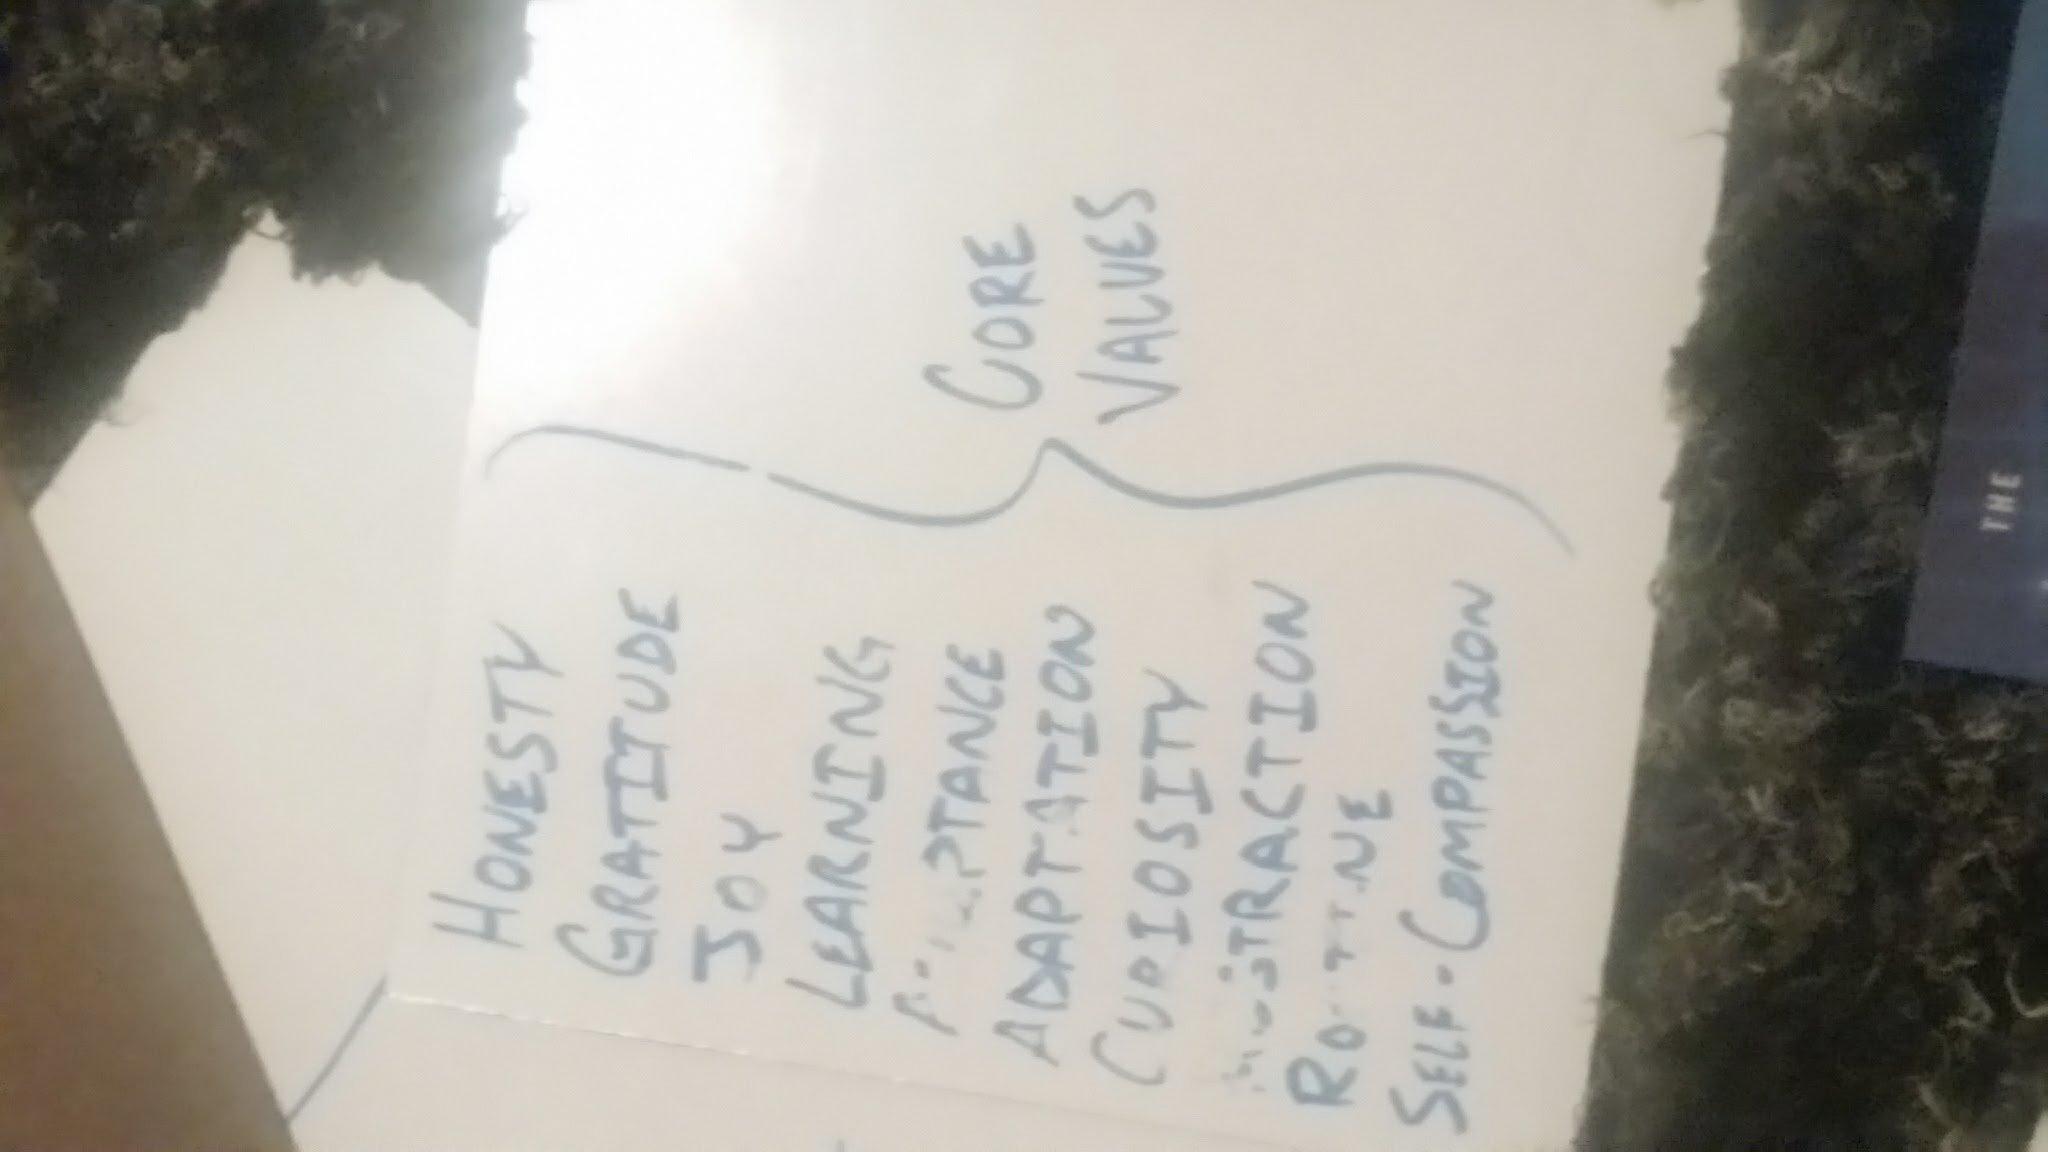 HONESTY
GRATITUDE
JOY
LEARNING
ACCEPTANCE
ADAPTATION
CURIOSITY
ROUTINE
SELF-COMPASSION
CORE
VALUES
THE